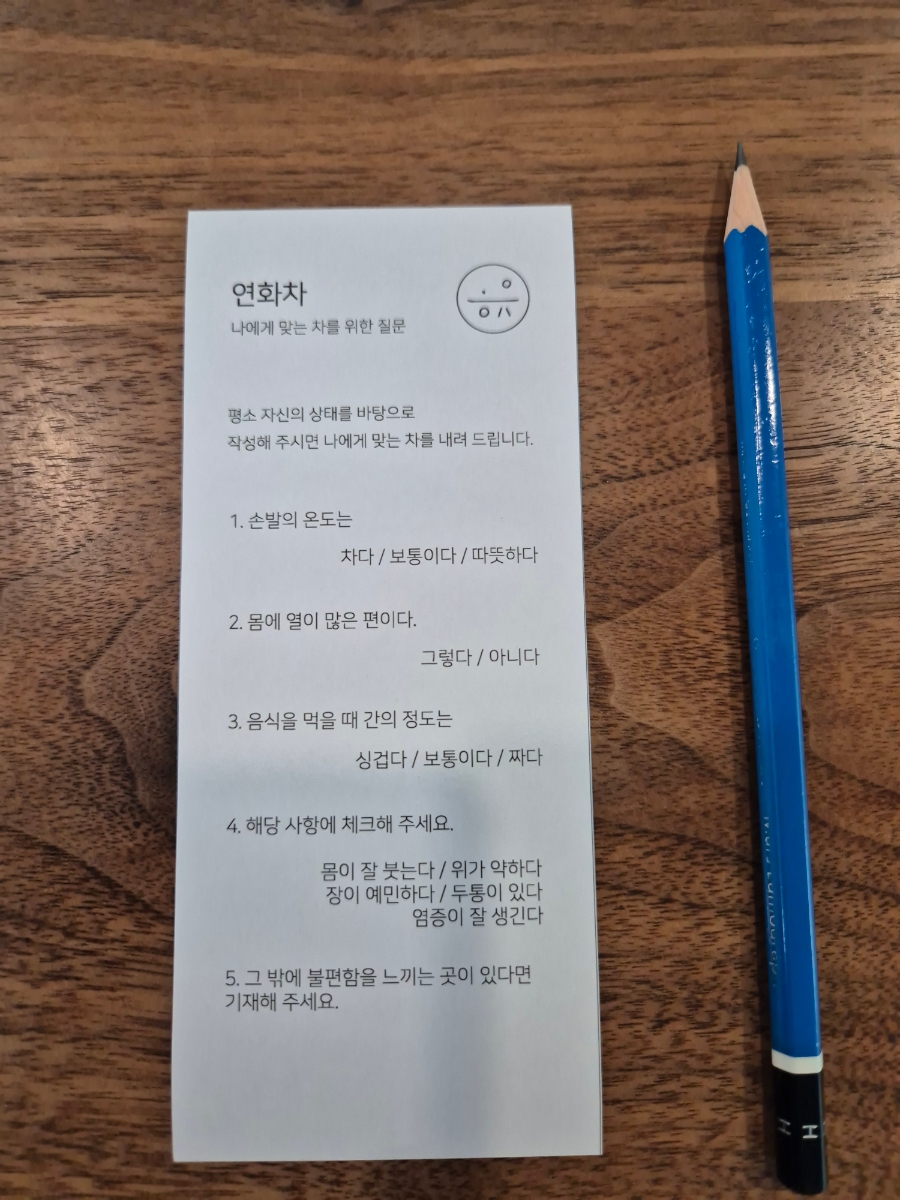 연화차
나에게 맞는 차를 위한 질문
평소 자신의 상태를 바탕으로
작성해 주시면 나에게 맞는 차를 내려 드립니다.
1. 손발의 온도는
차다 / 보통이다 / 따뜻하다
2. 몸에 열이 많은 편이다.
그렇다 / 아니다
3. 음식을 먹을 때 간의 정도는
싱겁다 / 보통이다 / 짜다
4. 해당 사항에 체크해 주세요.
몸이 잘 붓는다 / 위가 약하다
장이 예민하다 / 두통이 있다
염증이 잘 생긴다
5. 그 밖에 불편함을 느끼는 곳이 있다면
기재해 주세요.
H H